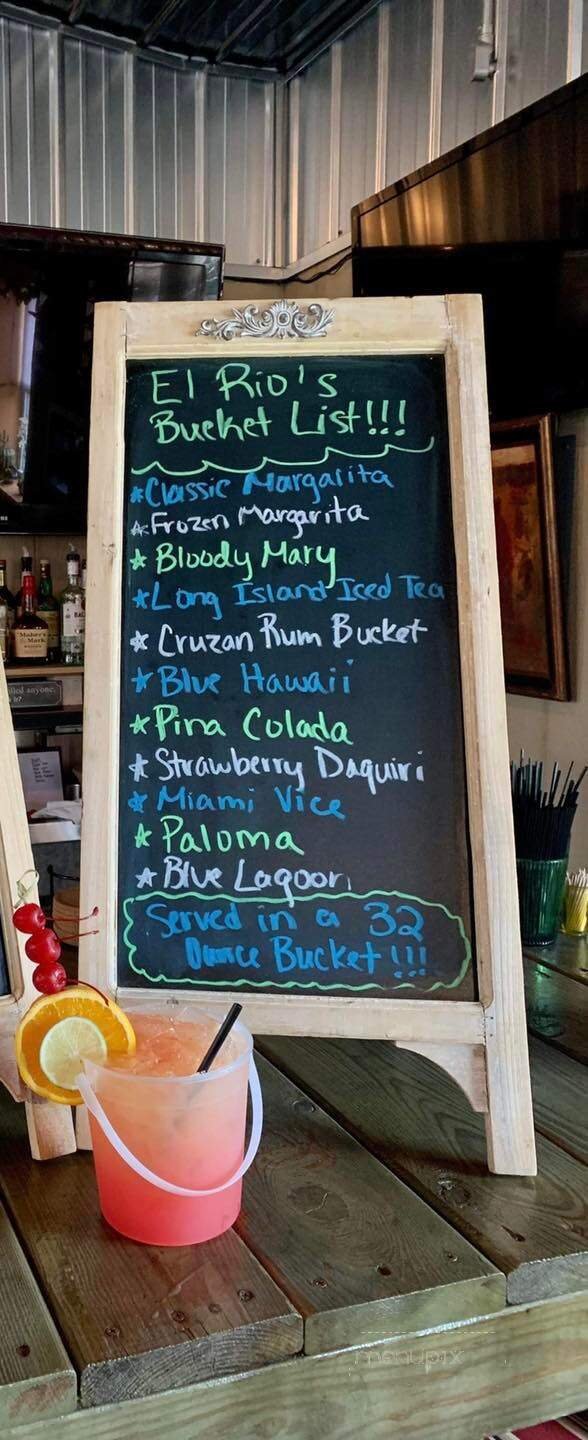 El Rio's
Bucket List!!!
*Classic Margarita
*Frozen Margarita
*Bloody Mary
*Long Island Iced Tea
*Cruzan Rum Bucket
*Blue Hawaii
*Pina Colada
*Strawberry Daquiri
*Miami Vice
*Paloma
*Blue Lagoon
Served in a 32
Ounce Bucket!!!
Maker's
Mark
menupix